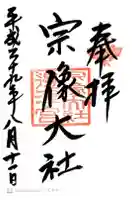 奉拝
宗像大社
平成二十九年八月十一日